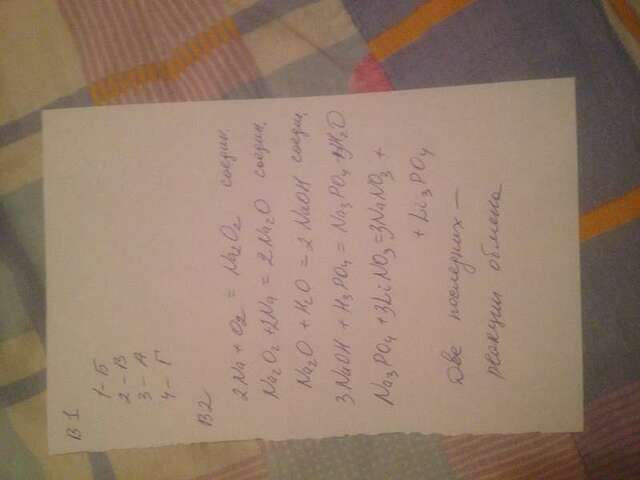 В 1
1 - Б
2 - В
3 - А
4 - Г
В2
2Na + O₂ = Na₂O₂ соедин.
Na₂O₂ + 2Na = 2Na₂O соедин.
Na₂O + H₂O = 2 NaOH соедин.
3NaOH + H₃PO₄ = Na₃PO₄ + 3H₂O
Na₃PO₄ + 3LiNO₃ = 3NaNO₃ +
+ Li₃PO₄
Две последних —
реакции обмена